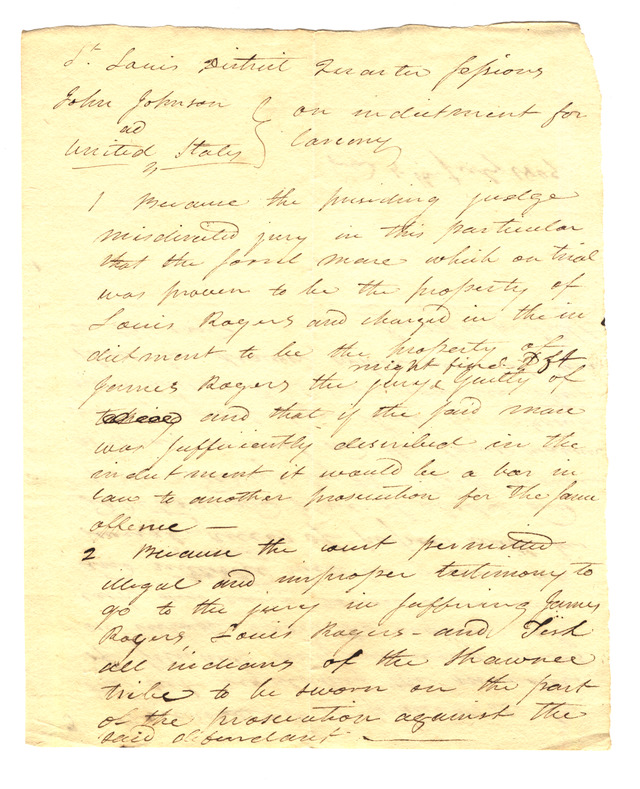 St Louis District Quarter Sessions
John Johnson
ad
United States
on indictment for
Larceny
1 Because the presiding judge
misdirected jury in this particular
that the sorrel mare which on trial
was proven to be the property of
Louis Rogers and charged in the in
dictment to be the property of
might find Dft
James Rogers the jury Guilty of
and that if the said mare
was sufficiently described in the
indictment it would be a bar in
Law to another prosecution for the same
offence —
2 Because the court permitted
illegal and improper testimony to
go to the jury in suffering James
Rogers Louis Rogers - and Fish
all indians of the Shawnee
tribe to be sworn on the part
of the prosecution against the
said defendant —